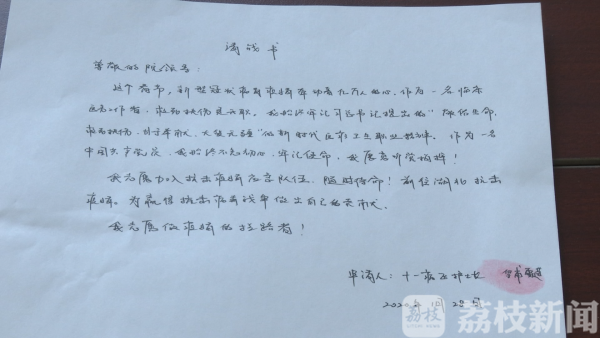 请战书
尊敬的院领导：
这个春节，新型冠状病毒疫情牵动着亿万人的心，作为一名临床
医务工作者，救死扶伤是天职。我始终牢记习总书记提出的"敬佑生命、
救死扶伤、甘于奉献、大爱无疆"的新时代医务工作者职业精神。作为一名
中国共产党党员，我始终不忘初心，牢记使命，我愿意听党指挥！
我志愿加入抗击疫情应急队伍，随时待命！前往湖北抗击
疫情。为赢得抗击疫情战争做出自己的贡献。
我志愿做疫情的逆路者！
申请人：十一病区护士长
荔枝
荔枝新闻